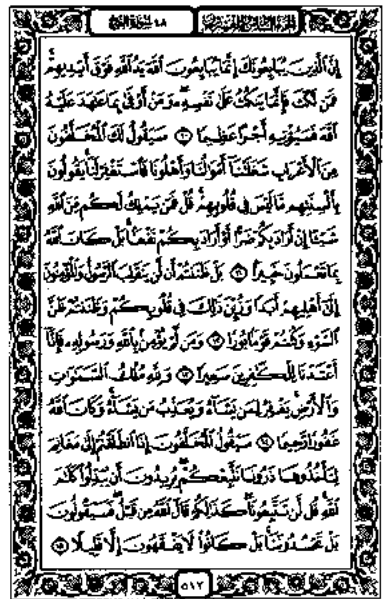 الجزء السادس والعشرون ٤٨ سورة الفتح
إِنَّ الَّذِينَ يُبَايِعُونَكَ إِنَّمَا يُبَايِعُونَ اللَّهَ يَدُ اللَّهِ فَوْقَ أَيْدِيهِمْ
فَمَن نَّكَثَ فَإِنَّمَا يَنكُثُ عَلَىٰ نَفْسِهِ وَمَنْ أَوْفَىٰ بِمَا عَاهَدَ عَلَيْهُ
اللَّهَ فَسَيُؤْتِيهِ أَجْرًا عَظِيمًا ١٠ سَيَقُولُ لَكَ الْمُخَلَّفُونَ
مِنَ الْأَعْرَابِ شَغَلَتْنَا أَمْوَالُنَا وَأَهْلُونَا فَاسْتَغْفِرْ لَنَا يَقُولُونَ
بِأَلْسِنَتِهِم مَّا لَيْسَ فِي قُلُوبِهِمْ قُلْ فَمَن يَمْلِكُ لَكُم مِّنَ اللَّهِ
شَيْئًا إِنْ أَرَادَ بِكُمْ ضَرًّا أَوْ أَرَادَ بِكُمْ نَفْعًا بَلْ كَانَ اللَّهُ
بِمَا تَعْمَلُونَ خَبِيرًا ١١ بَلْ ظَنَنتُمْ أَن لَّن يَنقَلِبَ الرَّسُولُ وَالْمُؤْمِنُونَ
إِلَىٰ أَهْلِيهِمْ أَبَدًا وَزُيِّنَ ذَٰلِكَ فِي قُلُوبِكُمْ وَظَنَنتُمْ ظَنَّ
السَّوْءِ وَكُنتُمْ قَوْمًا بُورًا ١٢ وَمَن لَّمْ يُؤْمِن بِاللَّهِ وَرَسُولِهِ فَإِنَّا
أَعْتَدْنَا لِلْكَافِرِينَ سَعِيرًا ١٣ وَلِلَّهِ مُلْكُ السَّمَاوَاتِ
وَالْأَرْضِ يَغْفِرُ لِمَن يَشَاءُ وَيُعَذِّبُ مَن يَشَاءُ وَكَانَ اللَّهُ
غَفُورًا رَّحِيمًا ١٤ سَيَقُولُ الْمُخَلَّفُونَ إِذَا انطَلَقْتُمْ إِلَىٰ مَغَانِمَ
لِتَأْخُذُوهَا ذَرُونَا نَتَّبِعْكُمْ يُرِيدُونَ أَن يُبَدِّلُوا كَلَامَ
اللَّهِ قُل لَّن تَتَّبِعُونَا كَذَٰلِكُمْ قَالَ اللَّهُ مِن قَبْلُ فَسَيَقُولُونَ
بَلْ تَحْسُدُونَنَا بَلْ كَانُوا لَا يَفْقَهُونَ إِلَّا قَلِيلًا ١٥
٥١٢